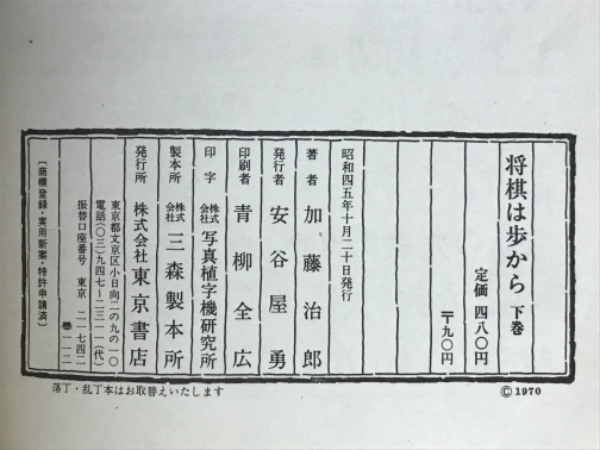 将棋は歩から 下巻
定価 四八〇円
〒九〇円
昭和四五年十月二十日発行
著者 加藤治郎
発行者 安谷屋勇
印刷者 青柳全広
印字 株式会社 写真植字機研究所
製本所 株式会社 三森製本所
発行所 株式会社東京書店
東京都文京区小日向二の九の二〇
電話(〇三)九四七〜二三一一(代)
振替口座番号 東京 二一七四二
〒一一二
〔商標登録・実用新案・特許申請済〕
落丁・乱丁本はお取替えいたします
©1970